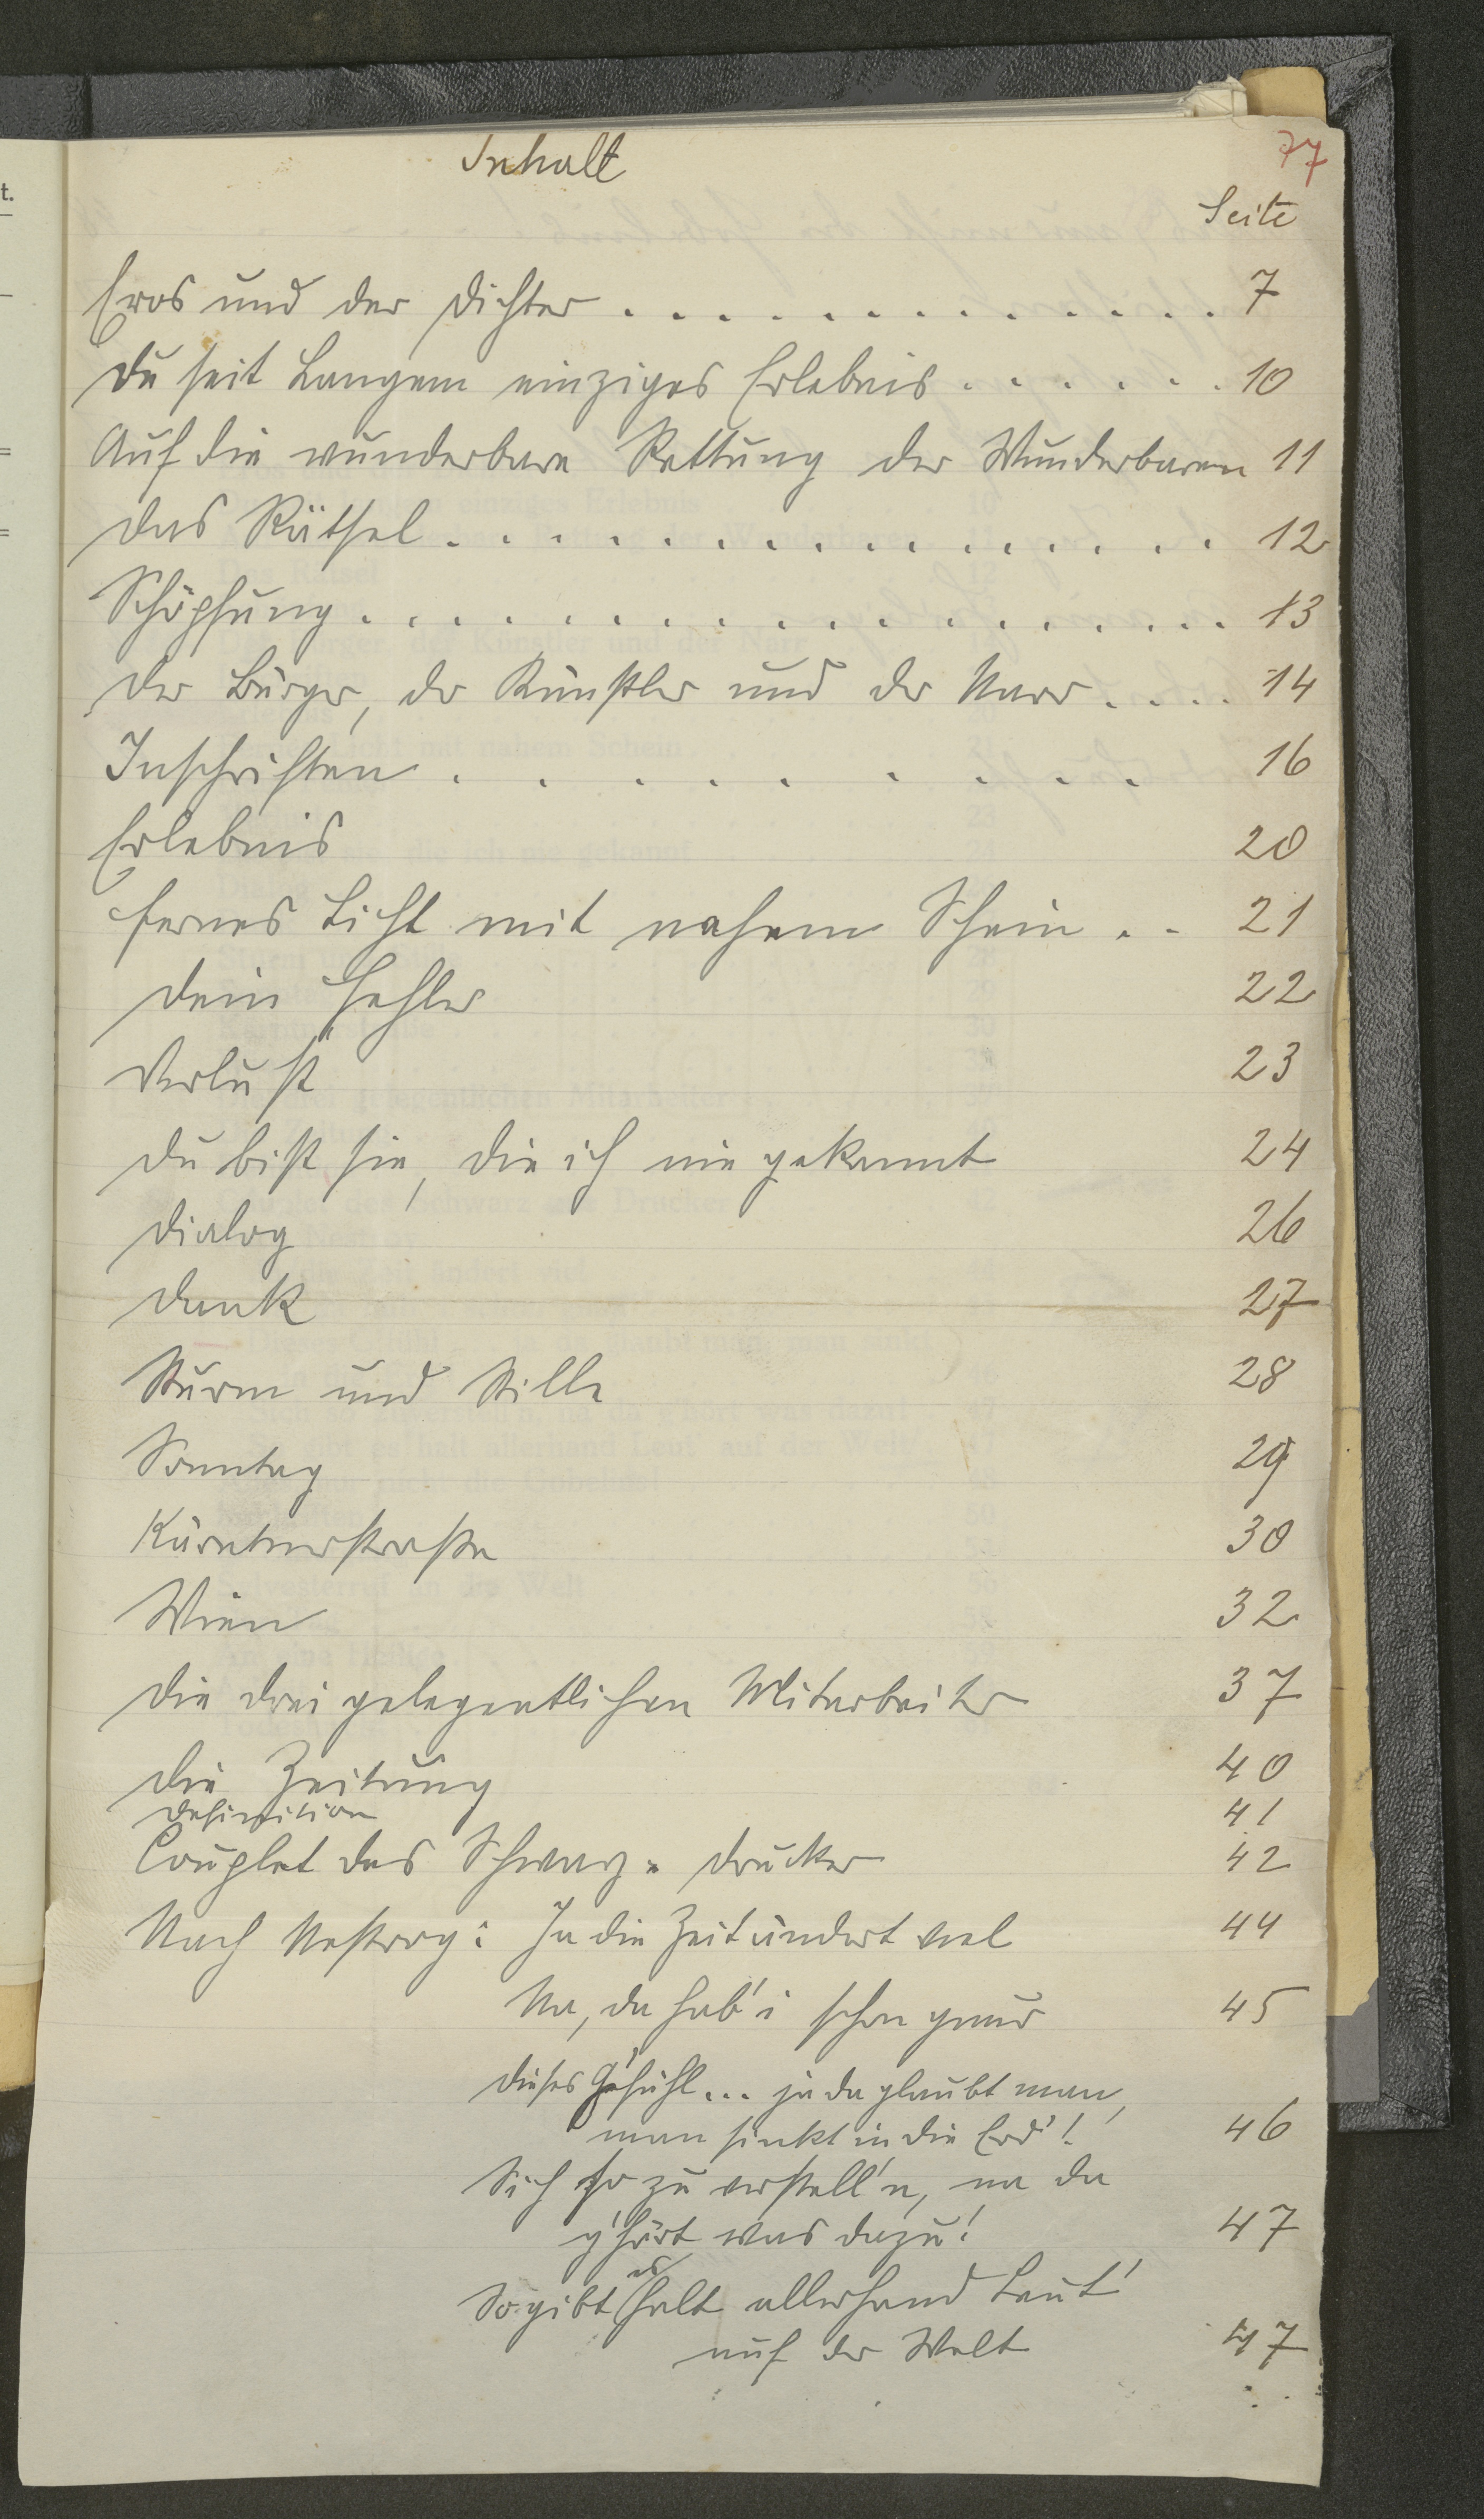 Inhalt
77
Seite
Eros und der Dichter . . . . . . . . . . . . . . 7
Du seit Langem einziges Erlebnis . . . . . . 10
Auf die wunderbare Rettung der Wunderbaren 11
Das Rätsel . . . . . . . . . . . . . . . 12
Schöpfung . . . . . . . . . . . . . . . . . 13
Der Bürger, der Künstler und der Narr . . . . 14
Inschriften . . . . . . . . . 16
Erlebnis 20
Fernes Licht mit nahem Schein . . 21
Dein Fehler 22
Verlust 23
Du bist sie, die ich nie gekannt 24
Dialog 26
Dank 27
Sturm und Stille 28
Sonntag 29
Kärntnerstraße 30
Wien 32
Die drei gelegentlichen Mitarbeiter 37
Die Zeitung 40
Definition 41
Couplet des Schwarz-Drucker 42
Nach Nestroy: Ja die Zeit ändert viel 44
Na, da hab' i schon gnur 45
Dieses G'fühl... ja da glaubt man,
man sinkt in die Erd'! 46
Sich so zu verstell'n, na da
g'hört was dazu! 47
So gibt es halt allerhand Leut'
auf der Welt 47